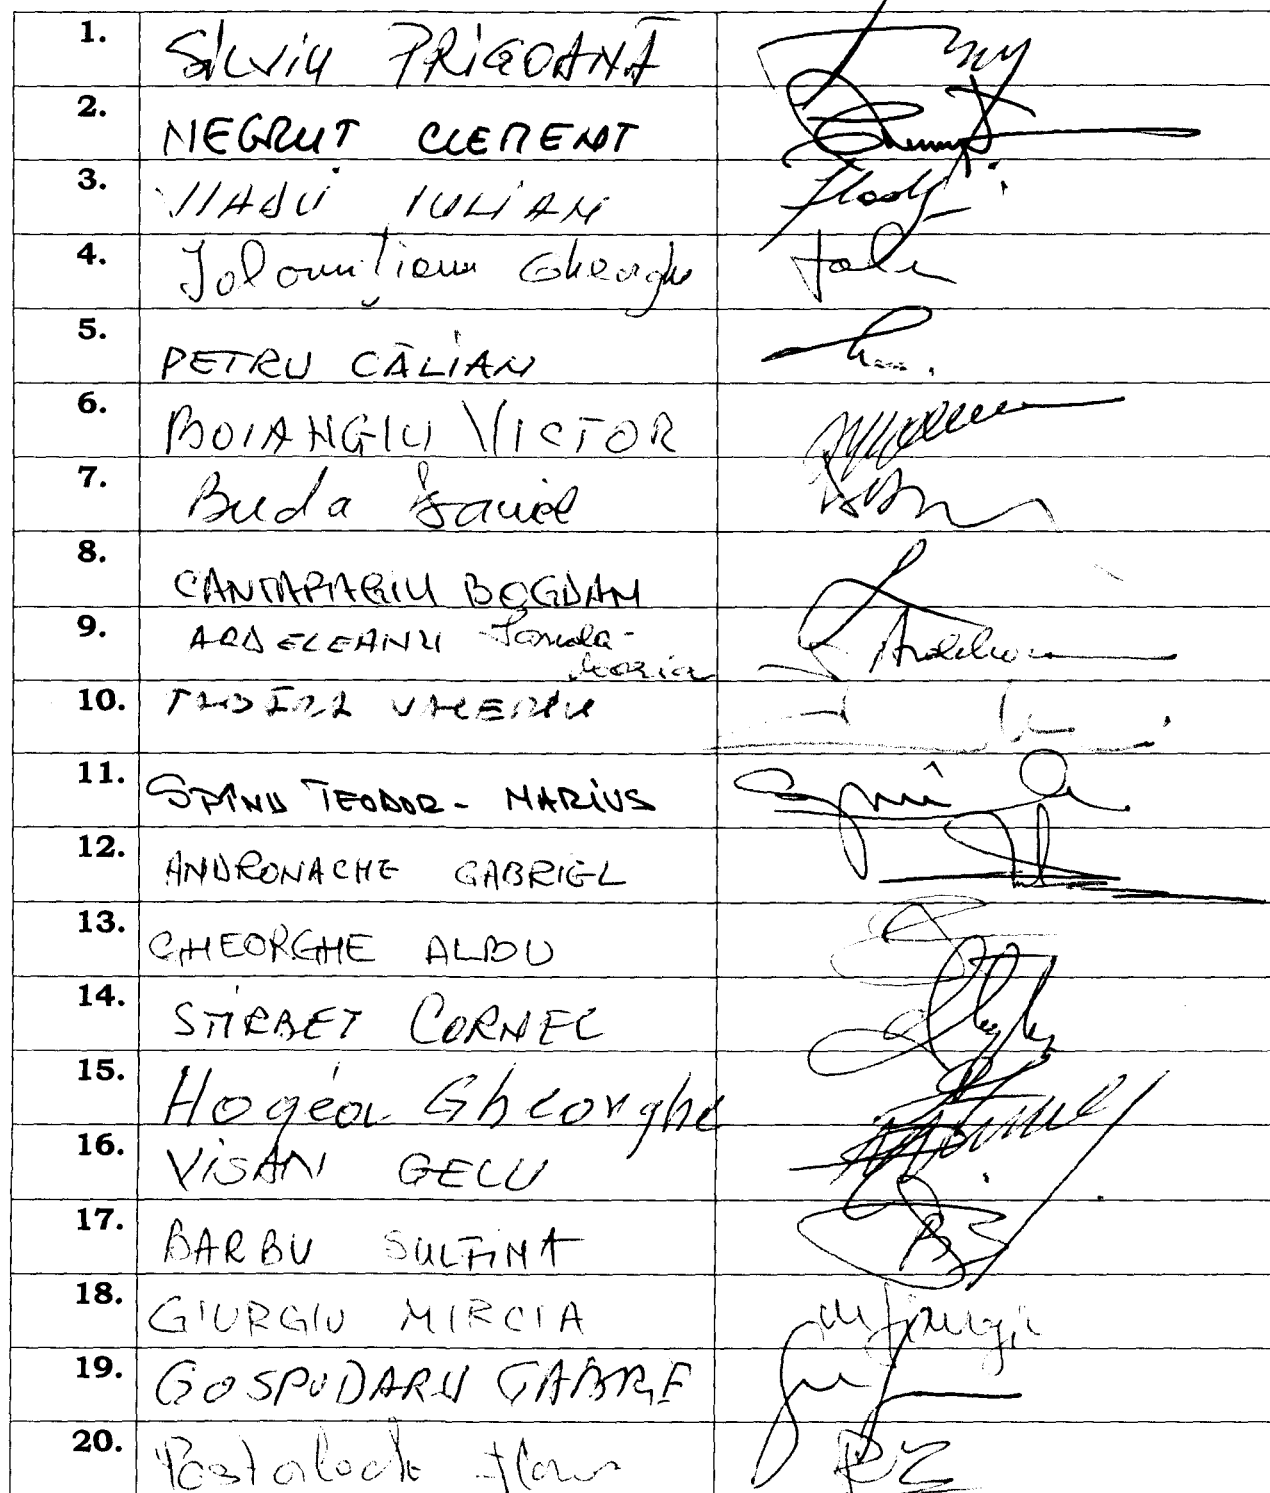 1. Silviu PRIGOANĂ
2. NEGRUT CLEMENT
3. VLADU IULIAN
4. Ialomițianu Gheorghe
5. PETRU CĂLIAN
6. BOIANGIU VICTOR
7. Buda Daniel
8. CANTARAGIU BOGDAN
9. ARDELEANU Sanda-
Maria
10. TABĂRĂ VALERIU
11. SPÎNU TEODOR - MARIUS
12. ANDRONACHE GABRIEL
13. GHEORGHE ALBU
14. STIRBET CORNEL
15. Hogea Gheorghe
16. VISAN GELU
17. BARBU SULFINA
18. GIURGIU MIRCIA
19. GOSPODARU GABRIE
20.